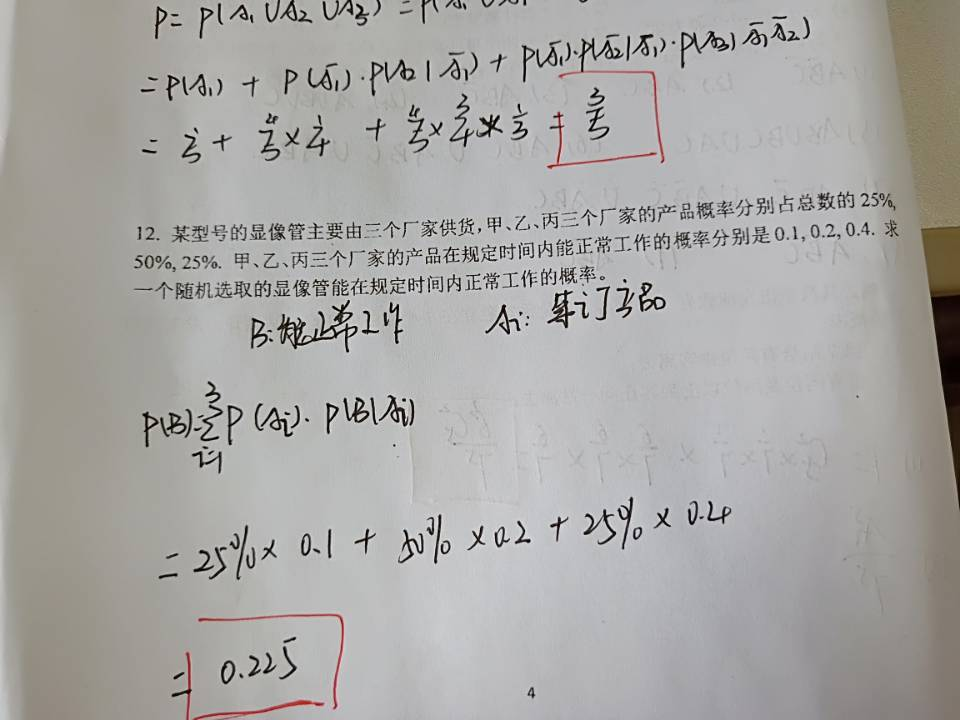 P = P(A₁∪A₂∪A₃) = P(A₁
= P(A₁) + P(Ā₁)·P(A₂|Ā₁) + P(Ā₁)·P(Ā₂|Ā₁)·P(A₃|Ā₁Ā₂)
= 1/5 + 4/5 × 1/4 + 4/5 × 3/4 × 1/3 = 3/5
12. 某型号的显像管主要由三个厂家供货,甲、乙、丙三个厂家的产品概率分别占总数的 25%,
50%, 25%. 甲、乙、丙三个厂家的产品在规定时间内能正常工作的概率分别是 0.1, 0.2, 0.4. 求
一个随机选取的显像管能在规定时间内正常工作的概率。
B: 能正常工作 Ai: 第i厂产品
P(B)=∑³ᵢ₌₁P(Ai)·P(B|Ai)
= 25% × 0.1 + 50% × 0.2 + 25% × 0.4
= 0.225
4